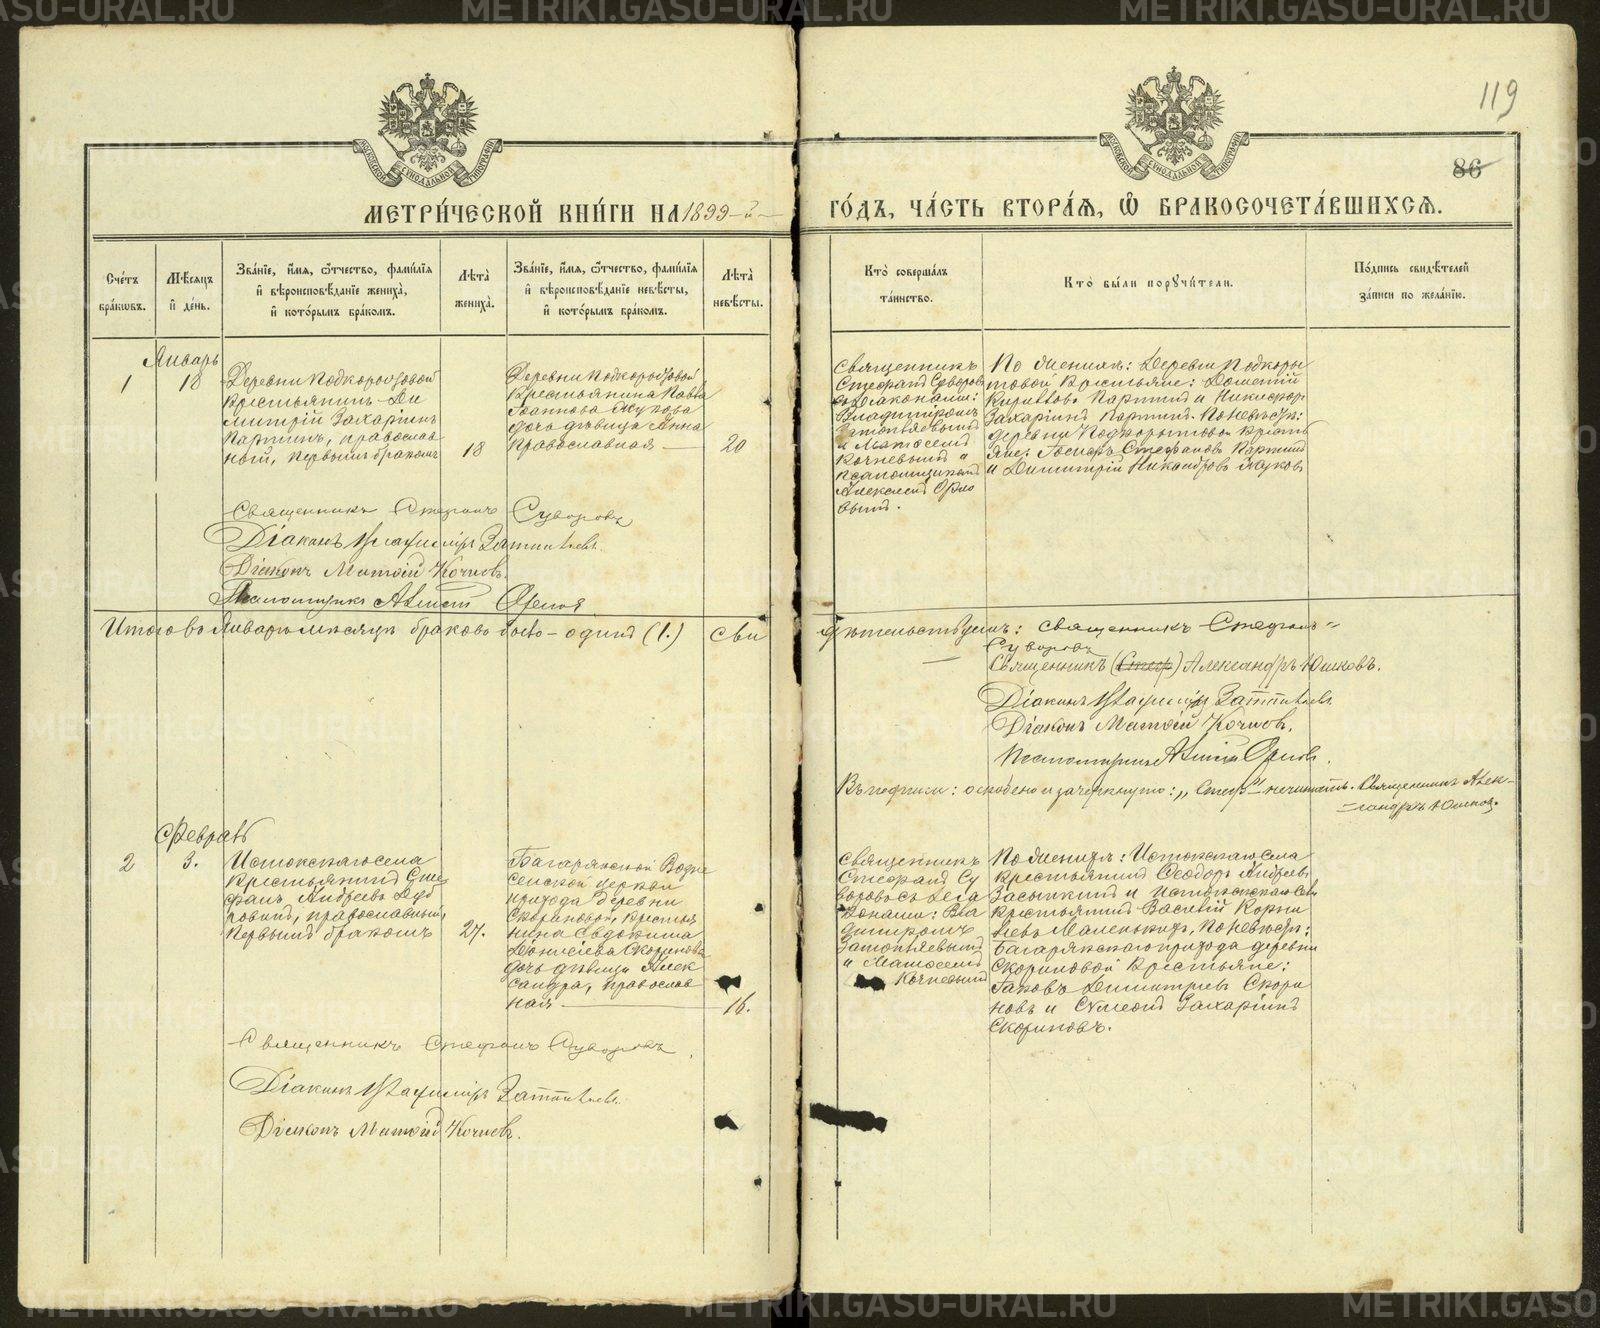 119
86
МЕТРИ́ЧЕСКОЙ КНИ́ГИ НА 1899-й
ГО́ДЪ, ЧА́СТЬ ВТОРА́Я, Ѡ БРАКОСОЧЕТА́ВШИХСЯ.
Сче́тъ бра́кѡвъ.
Мѣ́сяцъ и҆ де́нь.
Зва́нїе, и҆́мя, ѻ҆́тчество, фами́лїя и҆ вѣроисповѣ́данїе жениха̀, и҆ кото́рымъ бра́комъ.
Лѣ́та жениха̀.
Зва́нїе, и҆́мя, ѻ҆́тчество, фами́лїя и҆ вѣроисповѣ́данїе невѣ́сты, и҆ кото́рымъ бра́комъ.
Лѣ́та невѣ́сты.
Кто̀ соверша́лъ та́инство.
Кто̀ бы́ли порꙋчи́тели.
По́дпись свидѣ́телей за́писи по жела́нїю.
Январь
1
18
Деревни Подкорытовой
крестьянинъ Ди
митрій Захаріинъ
Паршинъ, православ
ный, первымъ бракомъ
18
Деревни Подкорытовой
крестьянина Павла
Іоаннова Жукова
дочь дѣвица Анна
православная
20
Священникъ
Стефанъ Суворовъ
съ діаконами:
Владиміромъ
Затопляевымъ
и Матѳеемъ
Кочневымъ и
псаломщикомъ
Алексіемъ Орло
вымъ.
По женихѣ: Деревни Подкоры
товой крестьяне: Дометій
Кириллов Паршинъ и Никифор
Захаріинъ Паршинъ. По невѣстѣ:
деревни Подкорытовой кресть
яне: Стефановъ Паршинъ
и Димитрій Никандровъ Жуковъ
Священникъ Стефанъ Суворовъ
Діаконъ Владиміръ Затопляевъ.
Діаконъ Матѳій Кочневъ.
Псаломщикъ Алексій Орлов
Итого въ Январѣ мѣсяцѣ браковъ было - одинъ (1.) сви
дѣтельствуемъ: Священникъ Стефанъ
Суворовъ
Священникъ (Стеф) Александръ Юшковъ.
Діаконъ Владиміръ Затопляевъ.
Діаконъ Матѳій Кочневъ.
Псаломщикъ Алексій Орловъ.
Въ подписи: оскоблено и зачеркнуто: „Стеф" не читать. Священникъ Алек-
сандръ Юшковъ.
Февраль
2
3.
Истокскаго села
крестьянинъ Сте
фанъ Андреевъ Дуб
ровинъ, православный,
первымъ бракомъ
27.
Багарякской Возне
сенской церкви
прихода деревни
Скориновой, крестья
нина Евдокима
Діонисіева Скоринова
дочь дѣвица Алек
сандра, православ
ная
16.
Священникъ
Стефанъ Су
воровъ съ діа
конами: Вла
диміромъ
Затопляевымъ
и Матѳеемъ
Кочневымъ
По женихѣ: Истокскаго села
крестьянинъ Ѳеодоръ Андреевъ
Засыпкинъ и Истокскаго села
крестьянинъ Василій Корни
льевъ Маленькихъ, По невѣстѣ:
Багарякскаго прихода деревни
Скориновой крестьяне:
Іаковъ Димитріевъ Скори
новъ и Сѵмеонъ Захаріинъ
Скориновъ.
Священникъ Стефанъ Суворовъ
Діаконъ Владиміръ Затопляевъ.
Діаконъ Матѳій Кочневъ.
METRIKI.GASO-URAL.RU